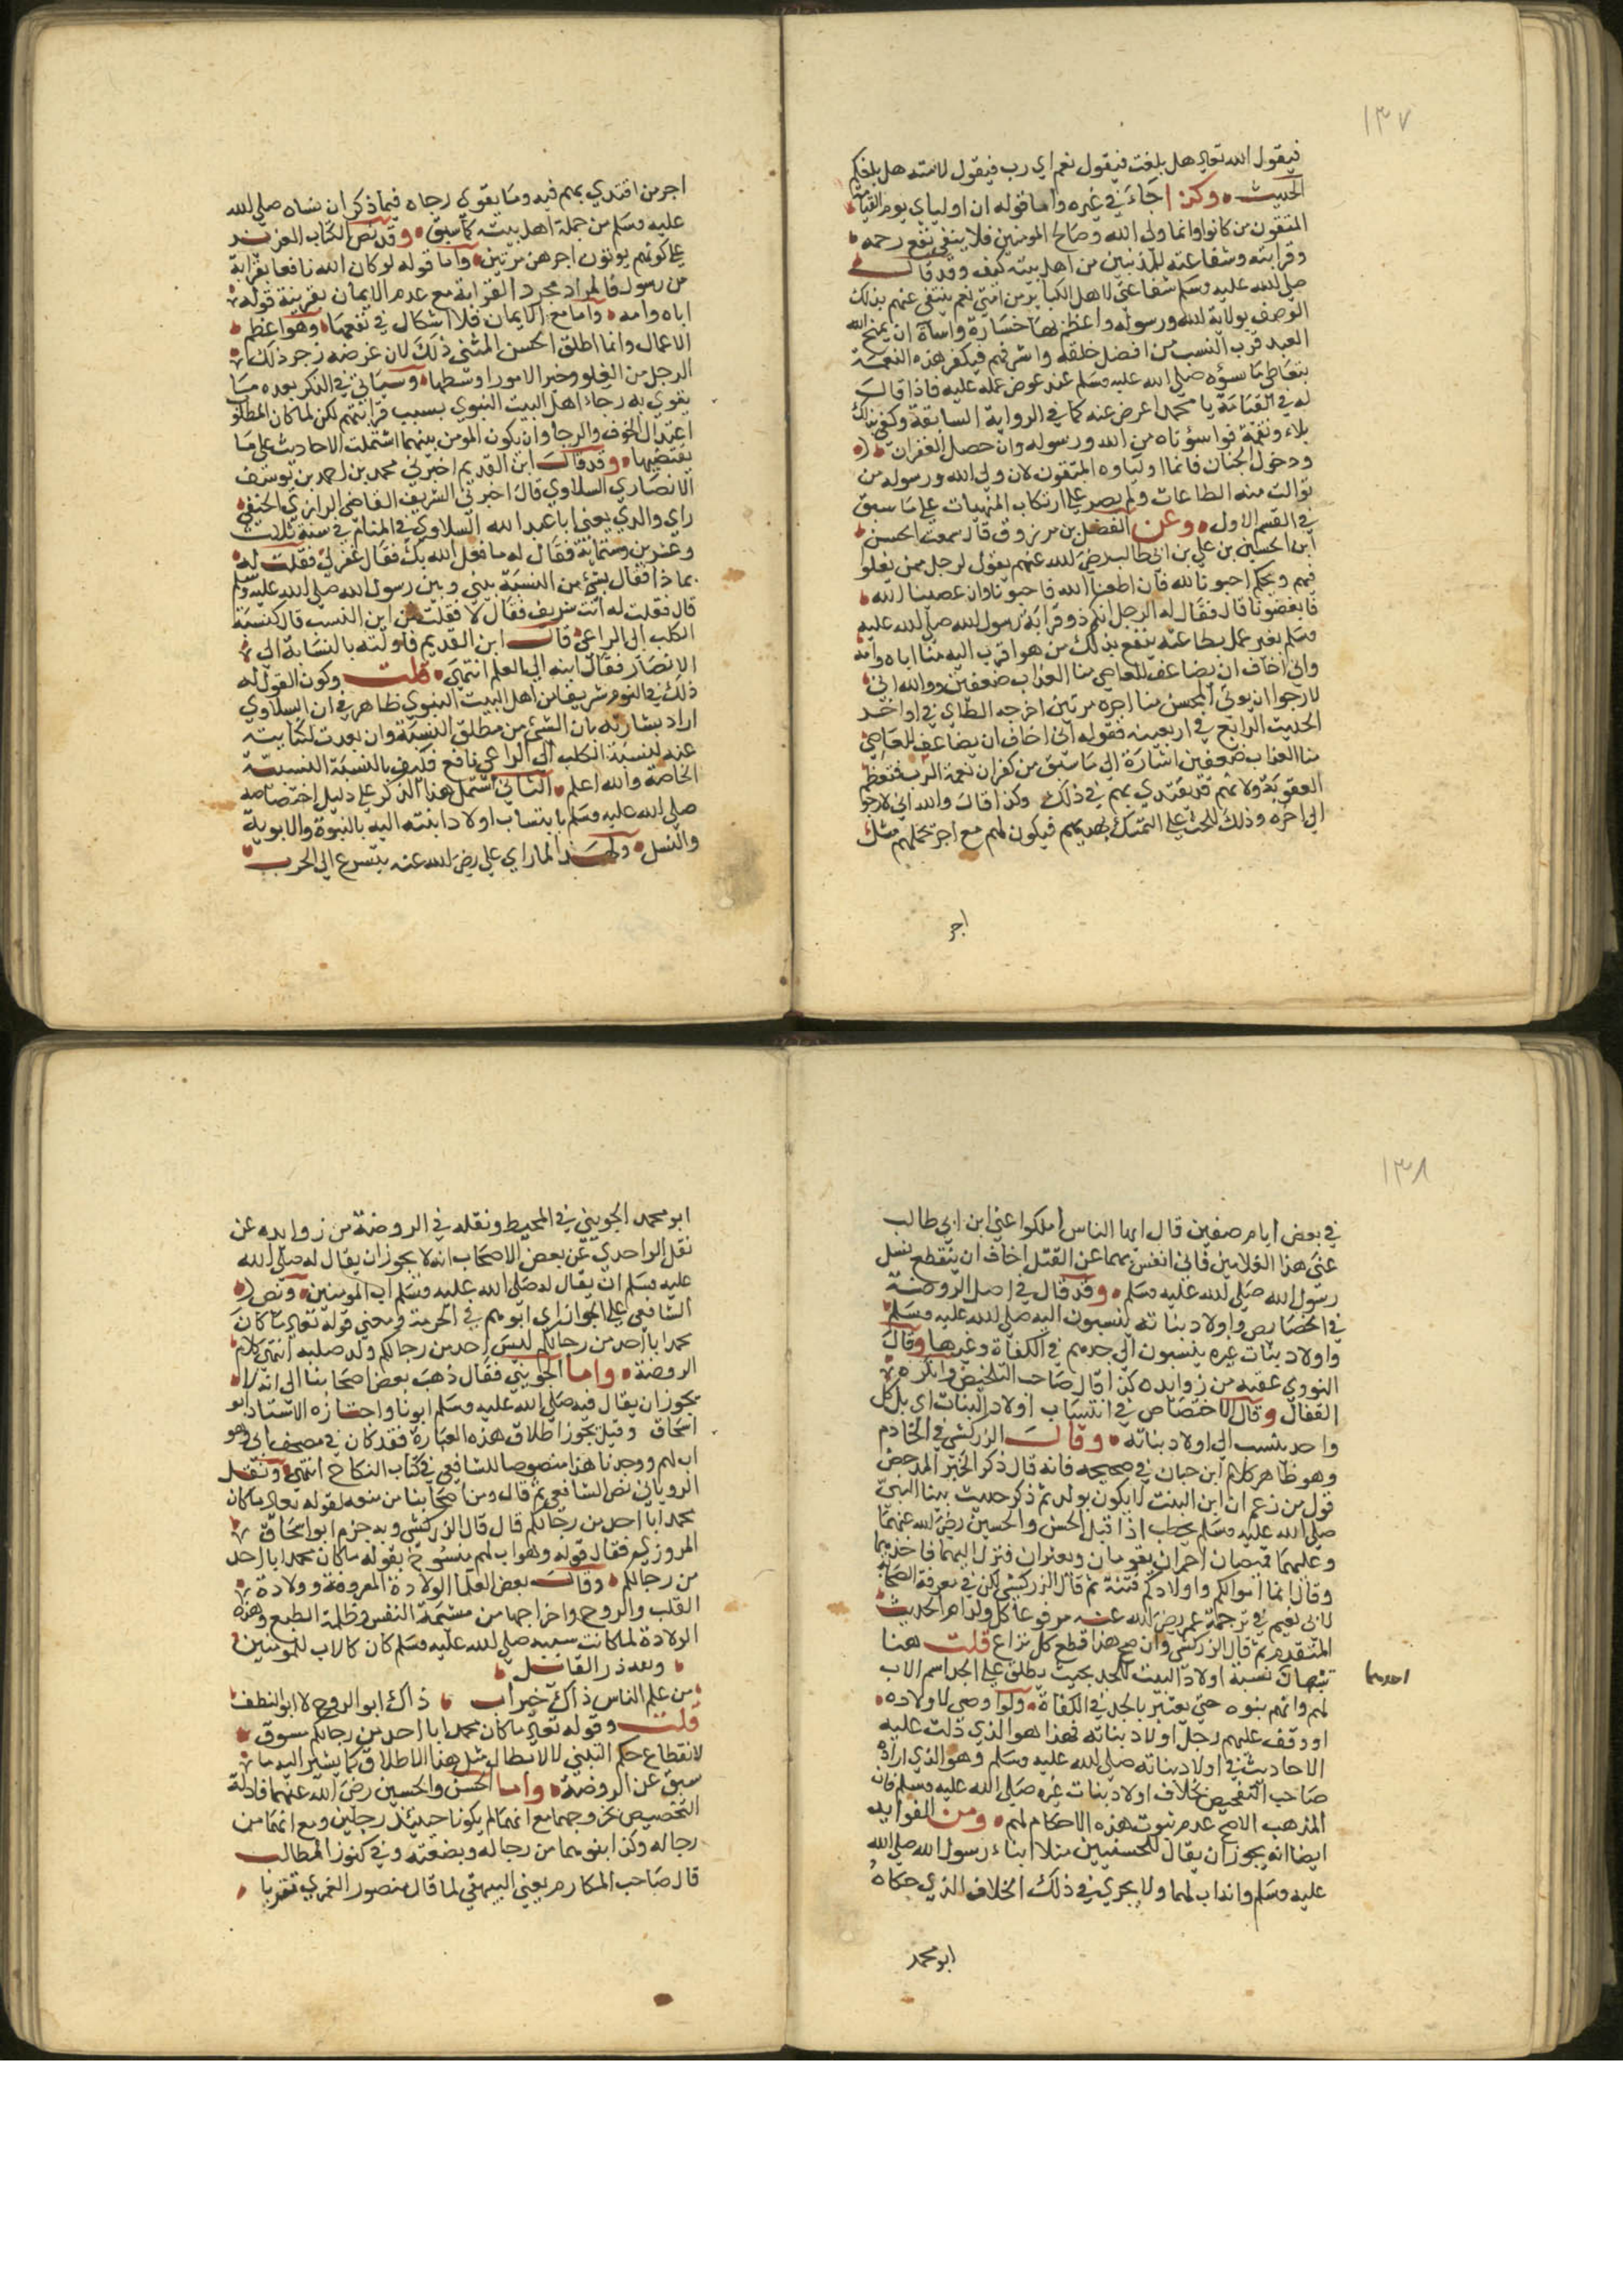 ١٣٧
فيقول الله تعالى هل بلغت فيقول نعم اي رب فيقول لامته هل بلغكم
الحديث وكذا جاء في غيره واما قوله ان اوليائي يوم القيامة
المتقون من كانوا وانما ولي الله وصالح المومنين فلا ينفي نفع رحمه
وقرابته وشفاعته للمذنبين من اهل بيته كيف وقد قال
صلى الله عليه وسلم شفاعتي لاهل الكباير من امتي نعم ينتفي عنهم بذلك
الوصف بولاية الله ورسوله واعظم بها خسارة واساة ان يمنح الله
العبد قرب النسب من افضل خلقه واشرفهم فيكفر هذه النعمة
بتعاطي ما يسؤه صلى الله عليه وسلم عند عرض عمله عليه فاذا قال
له في القيامة يا محمد اعرض عنه كما في الرواية السابقة وكفى بذلك
بلاء ونقمة فواسؤتاه من الله ورسوله وان حصل الغفران
ودخول الجنان فانما اولياوه المتقون لان ولي الله ورسوله من
توالت منه الطاعات ولم يصر على ارتكاب المنهيات على ما سبق
في القسم الاول وعن الفضل بن مرزوق قال سمعت الحسن
ابن الحسين بن علي بن ابي طالب رضي الله عنهم يقول لرجل ممن يغلو
فيهم ويحكم احبونا لله فان اطعنا الله فاحبونا وان عصينا الله
فابغضونا قال فقال له الرجل انكم ذو قرابة رسول الله صلى الله عليه
وسلم بغير عمل بطاعته ينفع بذلك من هو اقرب اليه منا اباه وامه
واني اخاف ان يضاعف للعاصي منا العذاب ضعفين ووالله اني
لارجوا ان يوتى المحسن منا اجره مرتين اخرجه الطاي في اواخر
الحديث الرابع في اربعينه فقوله اني اخاف ان يضاعف للعاصي
منا العذاب ضعفين اشارة الى ما سبق من كفران نعمة الرب فتعظم
العقوبة ولانهم قد يقتدي بهم في ذلك وكذا قال والله اني لارجوا
الى اخره وذلك للحث على التمسك بهديهم فيكون لهم مع اجر عملهم مثل
اجر
اجر من اقتدي بهم فيه ومما يقوي رجاه فيما ذكر ان نساه صلى الله
عليه وسلم من جملة اهل بيته كما سبق وقد نص الكتاب العزيز
على كونهم يوتون اجرهن مرتين واما قوله لو كان الله نافعا بقرابة
من رسول فالمراد مجرد القرابة مع عدم الايمان بقرينة قوله
اباه وامه واما مع الايمان فلا اشكال في نفعها وهو اعظم
الاعمال وانما اطلق الحسن المثنى ذلك لان غرضه زجر ذلك
الرجل من الغلو وخير الامور اوسطها وسياتي في الذكر بعده ما
يقوي به رجاء اهل البيت النبوي بسبب قرابتهم لكن لما كان المطلوب
اعتدال الخوف والرجا وان يكون المومن بينهما اشتملت الاحاديث على ما
يقتضيها وقد قال ابن القديم اخبرني محمد بن احمد بن يوسف
الانصاري السلاوي قال اخبرني الشريف القاضي الرازي الحنفي
راي والدي يعني ابا عبد الله السلاوي في المنام في سنة ثلاث
وعشرين وستماية فقال له ما فعل الله بك فقال غفر لي فقلت له
بماذا فقال بشئ من النسبة بيني وبين رسول الله صلى الله عليه وسلم
قال فقلت له انت شريف فقال لا فقلت من اين النسب قال كنسبة
الكلب الى الراعي قال ابن القديم فاولته بالنسابة الى
الانصار فقال ابنه الى العلم انتهى قلت وكون القول له
ذلك في النوم شريفا من اهل البيت النبوي ظاهر في ان السلاوي
اراد بشارته بان الشئ من مطلق النسبة وان بعدت لكنايته
عنه بنسبة الكلب الى الراعي نافع فكيف بالنسبة النسبية
الخاصة والله اعلم الثاني اشتمل هذا الذكر على دليل اختصاصه
صلى الله عليه وسلم بانتساب اولاد ابنته اليه بالبنوة والابوية
والنسل ولهذا لما راي علي رضي الله عنه يتسرع الى الحرب
١٣٨
في بعض ايام صفين قال ايها الناس املكوا عني ابن ابي طالب
عني هذا الغلامين فاني انفس بهما عن القتل اخاف ان ينقطع نسل
رسول الله صلى الله عليه وسلم وقد قال في اصل الروضة
في الخصايص واولاد بناته ينسبون اليه صلى الله عليه وسلم
واولاد بنات غيره ينسبون الى جدهم في الكفاة وغيرها وقال
النووي عقبه من زوايده كذا قال صاحب التلخيص وانكره
القفال وقال لا اختصاص في انتساب اولاد البنات اي بل كل
واحد ينسب الى اولاد بناته وقال الزركشي في الخادم
وهو ظاهر كلام ابن حبان في صحيحه فانه قال ذكر الخبر المدحض
قول من زعم ان ابن البنت لا يكون بولد ثم ذكر حديث بينا النبي
صلى الله عليه وسلم يخطب اذ اقبل الحسن والحسين رضي الله عنهما
وعليهما قميصان احمران يقومان ويعثران فنزل اليهما فاخذهما
وقال انما اموالكم واولادكم فتنة ثم قال الزركشي لكن في معرفة الصحابة
لابي نعيم في ترجمة عمر رضي الله عنه مرفوعا كل ولد ادم الحديث
المتقدم ثم قال الزركشي وان صح هذا قطع كل نزاع قلت هنا
تنبيهان نسبة اولاد البنت للجد بحيث يطلق على الجد اسم الاب
احدهما
لهم وانهم بنوه حتى يعتبر بالجد في الكفاة ولو اوصى لاولاده
او وقف عليهم رجل اولاد بناته فهذا هو الذي دلت عليه
الاحاديث في اولاد بناته صلى الله عليه وسلم وهو الذي اراده
صاحب التلخيص بخلاف اولاد بنات غيره صلى الله عليه وسلم فان
المذهب الاصح عدم ثبوت هذه الاحكام لهم ومن الفوايد
ايضا انه يجوز ان يقال للحسنيين مثلا ابناء رسول الله صلى الله
عليه وسلم وانه اب لهما ولا يجري في ذلك الخلاف الذي حكاه
ابو محمد
ابو محمد الجويني في المحيط ونقله في الروضة من زوايده عن
نقل الواحدي عن بعض الاصحاب انه لا يجوز ان يقال له صلى الله
عليه وسلم ان يقال له صلى الله عليه وسلم اب المومنين ونص
الشافعي على الجواز اي ابوهم في الحرمة ومعنى قوله تعالى ما كان
محمد ابا احد من رجالكم ليس احد من رجالكم ولد صلبه انتهى كلام
الروضة واما الجويني فقال ذهب بعض اصحابنا الى انه لا
يجوز ان يقال فيه صلى الله عليه وسلم ابونا واختاره الاستاذ ابو
اسحاق وقيل يجوز اطلاق هذه العبارة فقد كان في مصحف ابي وهو
اب لهم ووجدنا هذا منصوصا للشافعي في كتاب النكاح انتهى ونقل
الروياني نص الشافعي ثم قال ومن اصحابنا من منعه لقوله تعالى ما كان
محمد ابا احد من رجالكم قال قال الزركشي وبه جزم ابو اسحاق
المروزي فقال قوله وهو اب لهم منسوخ بقوله ما كان محمد ابا احد
من رجالكم وقال بعض العلما الولادة المعروفة وولادة
القلب والروح واخراجها من مشيمة النفس وظلمة الطبع وهذه
الولادة لما كانت بسببه صلى الله عليه وسلم كان كالاب للمومنين
وبعد در القائل
من علم الناس ذاك خير اب ذاك ابو الروح لا ابو النطف
قلت وقوله تعالى ما كان محمد ابا احد من رجالكم مسوق
لانقطاع حكم التبني لا لابطال مثل هذا الاطلاق كما يشير اليه ما
سبق عن الروضة واما الحسن والحسين رضي الله عنهما فادلة
التخصيص تخرجهما مع انهما لم يكونا حينئذ رجلين ومع انهما من
رجاله وكذا بنوهما من رجاله وبضعته وفي كنوز المطالب
قال صاحب المكارم يعني البيهقي لما قال منصور النمري تقربا